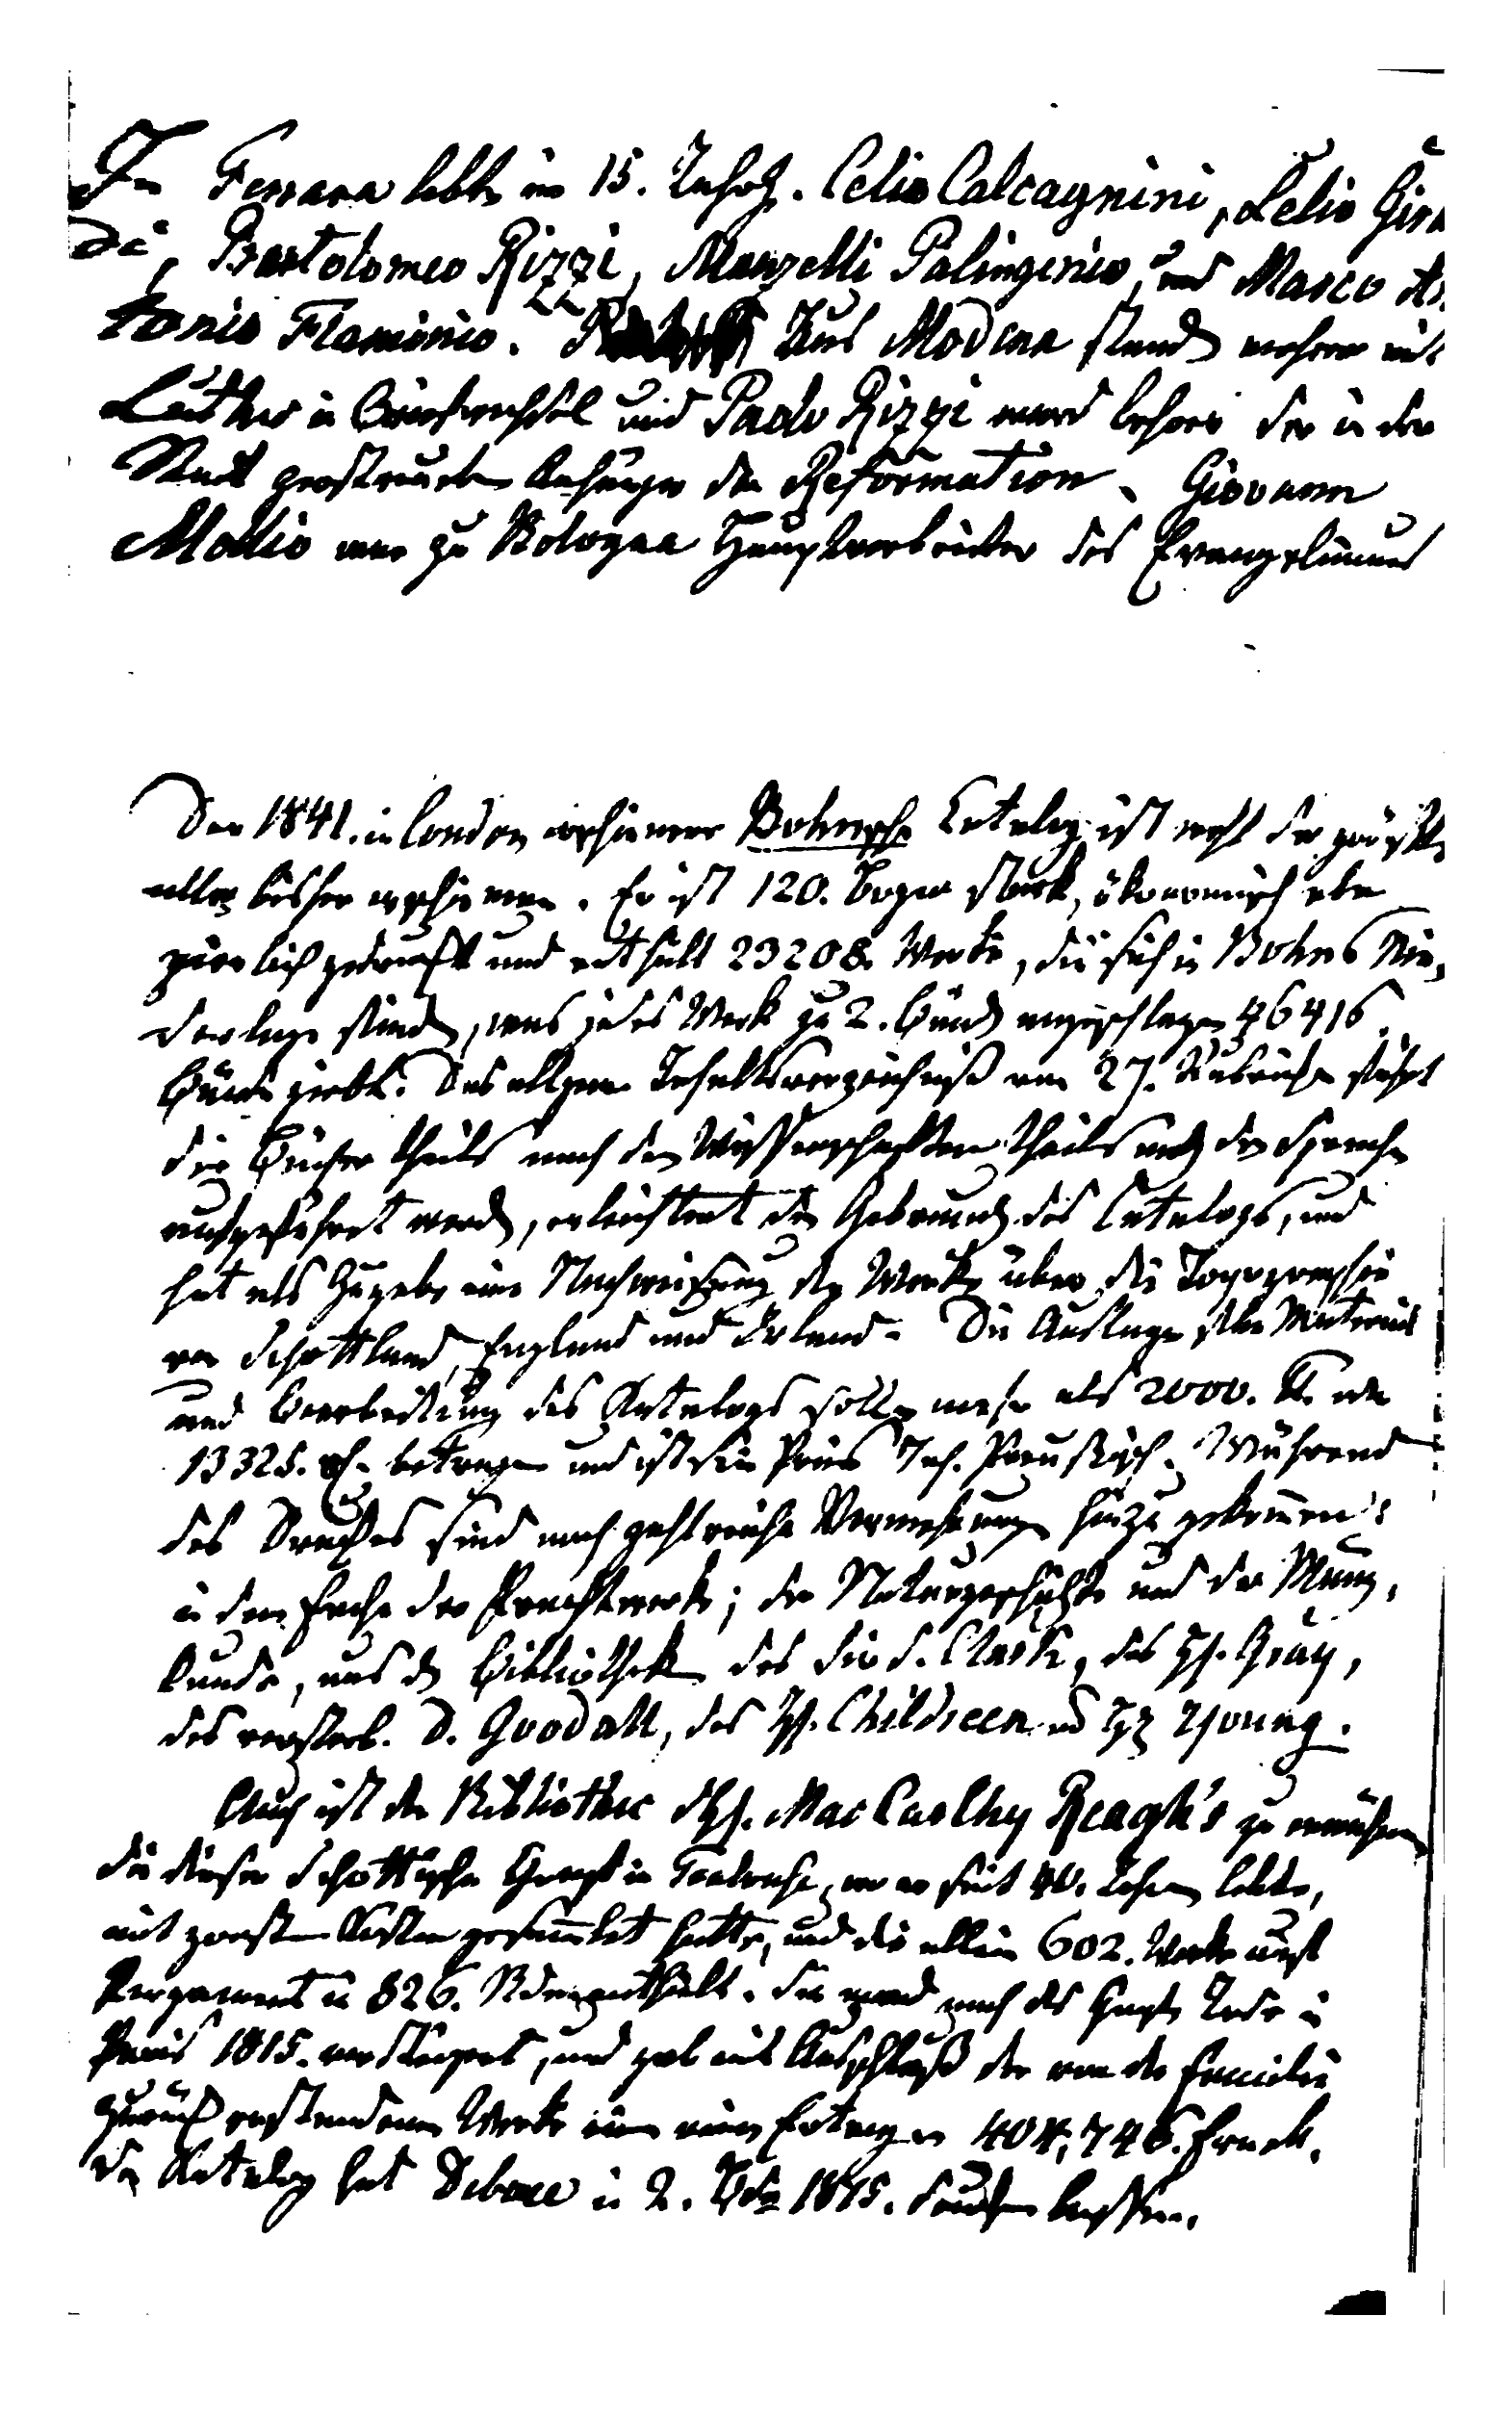 In Ferrara lebten im 15. Jahrh. Celio Calcagnini, Lelio Gira
di, Bartolomeo Rizzi, Marzelli Palingenio, und Marco An
tonio Flaminio. Aus Modena standen mehrere mit
Luther in Briefwechsel und Paolo Rizzi ward Lehrer der in der
Stadt zerstreuten Anhänger der Reformation. Giovanni
Mollio war zu Bologna Hauptverbreiter des Evangeliums
Der 1841. in London erschienene Bohnsche Catalog ist wohl der größte
aller bisher erschienenen. Er ist 120. Bogen stark, ökonomisch aber
zierlich gedruckt und enthält 23208. Werke, die sich in Bohns Nie-
derlage finden, was jedes Werk zu 2. Bänden angeschlagen 46416.
Bände giebt. Das allgem. Inhaltsverzeichniß von 27. Rubriken
die Bücher theils nach den Wissenschaften theils nach den Sprachen
aufgeführt werden, erleichtert den Gebrauch des Catalogs, und
hat als Zugabe eine Nachweisung der Werke über die Topographie
von Schottland, England und Irland. Die Auslage
und Bearbeitung des Katalogs sollen mehr als 2000. £. oder
13325. rh. betragen und ist sein Preis Preußisch. Während
des Druckes sind noch zahlreiche Vermehrungen hinzu gekommen:
in dem Fache der Prachtwerke; der Naturgeschichte und der Münz-
kunde, aus den Bibliotheken des Clark, des H. Gray,
des verstorb. D. Goodall, des H. Children und H. Young.
Auch ist der Bibliothec des H. Mac Carthy Reagh's zu erwähnen
die dieser Schottische Graf in Toulouse, wo er seit 40. Jahren lebte,
mit großen Kosten gesammelt hatte, und die allein 602. Werke auf
Pergament in 826. Bden enthielt. Sie ward nach des Grafen Tode in
Paris 1815. versteigert, und gab mit Ausschluß der von der Familie
zurück erstandenen Werke einen Ertrag von 404,746. Frank.
Den Katalog hat Debure in 2. Bden 1815. drucken lassen.